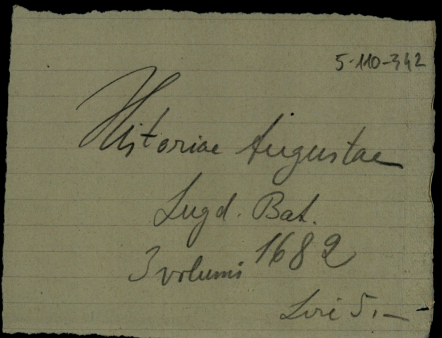 5-110-342
Historiae Augustae
Lugd. Bat.
3 volumi 1682
Lire 5.—